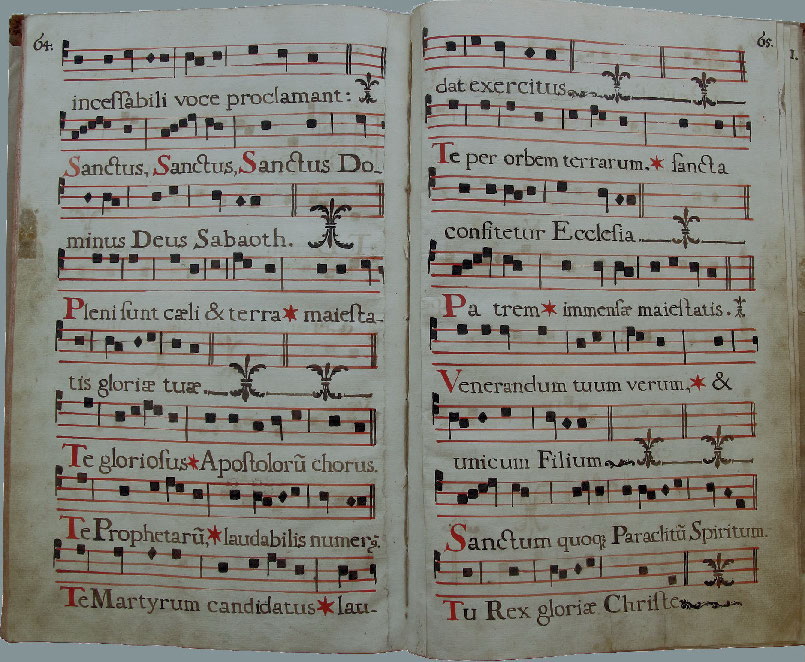 64.
inceſſabili voce proclamant:
Sanctus, Sanctus, Sanctus Do-
minus Deus Sabaoth.
Pleni ſunt cæli & terra * maieſta-
tis gloriæ tuæ.
Te glorioſus * Apoſtolorũ chorus.
Te Prophetarũ, * laudabilis numerꝰ.
Te Martyrum candidatus * lau-
65.
dat exercitus
Te per orbem terrarum, * ſancta
confitetur Eccleſia
Pa trem * immenſæ maieſtatis.
Venerandum tuum verum, * &
unicum Filium
Sanctum quoqꝫ Paraclitũ Spiritum.
Tu Rex gloriæ Chriſte
1.